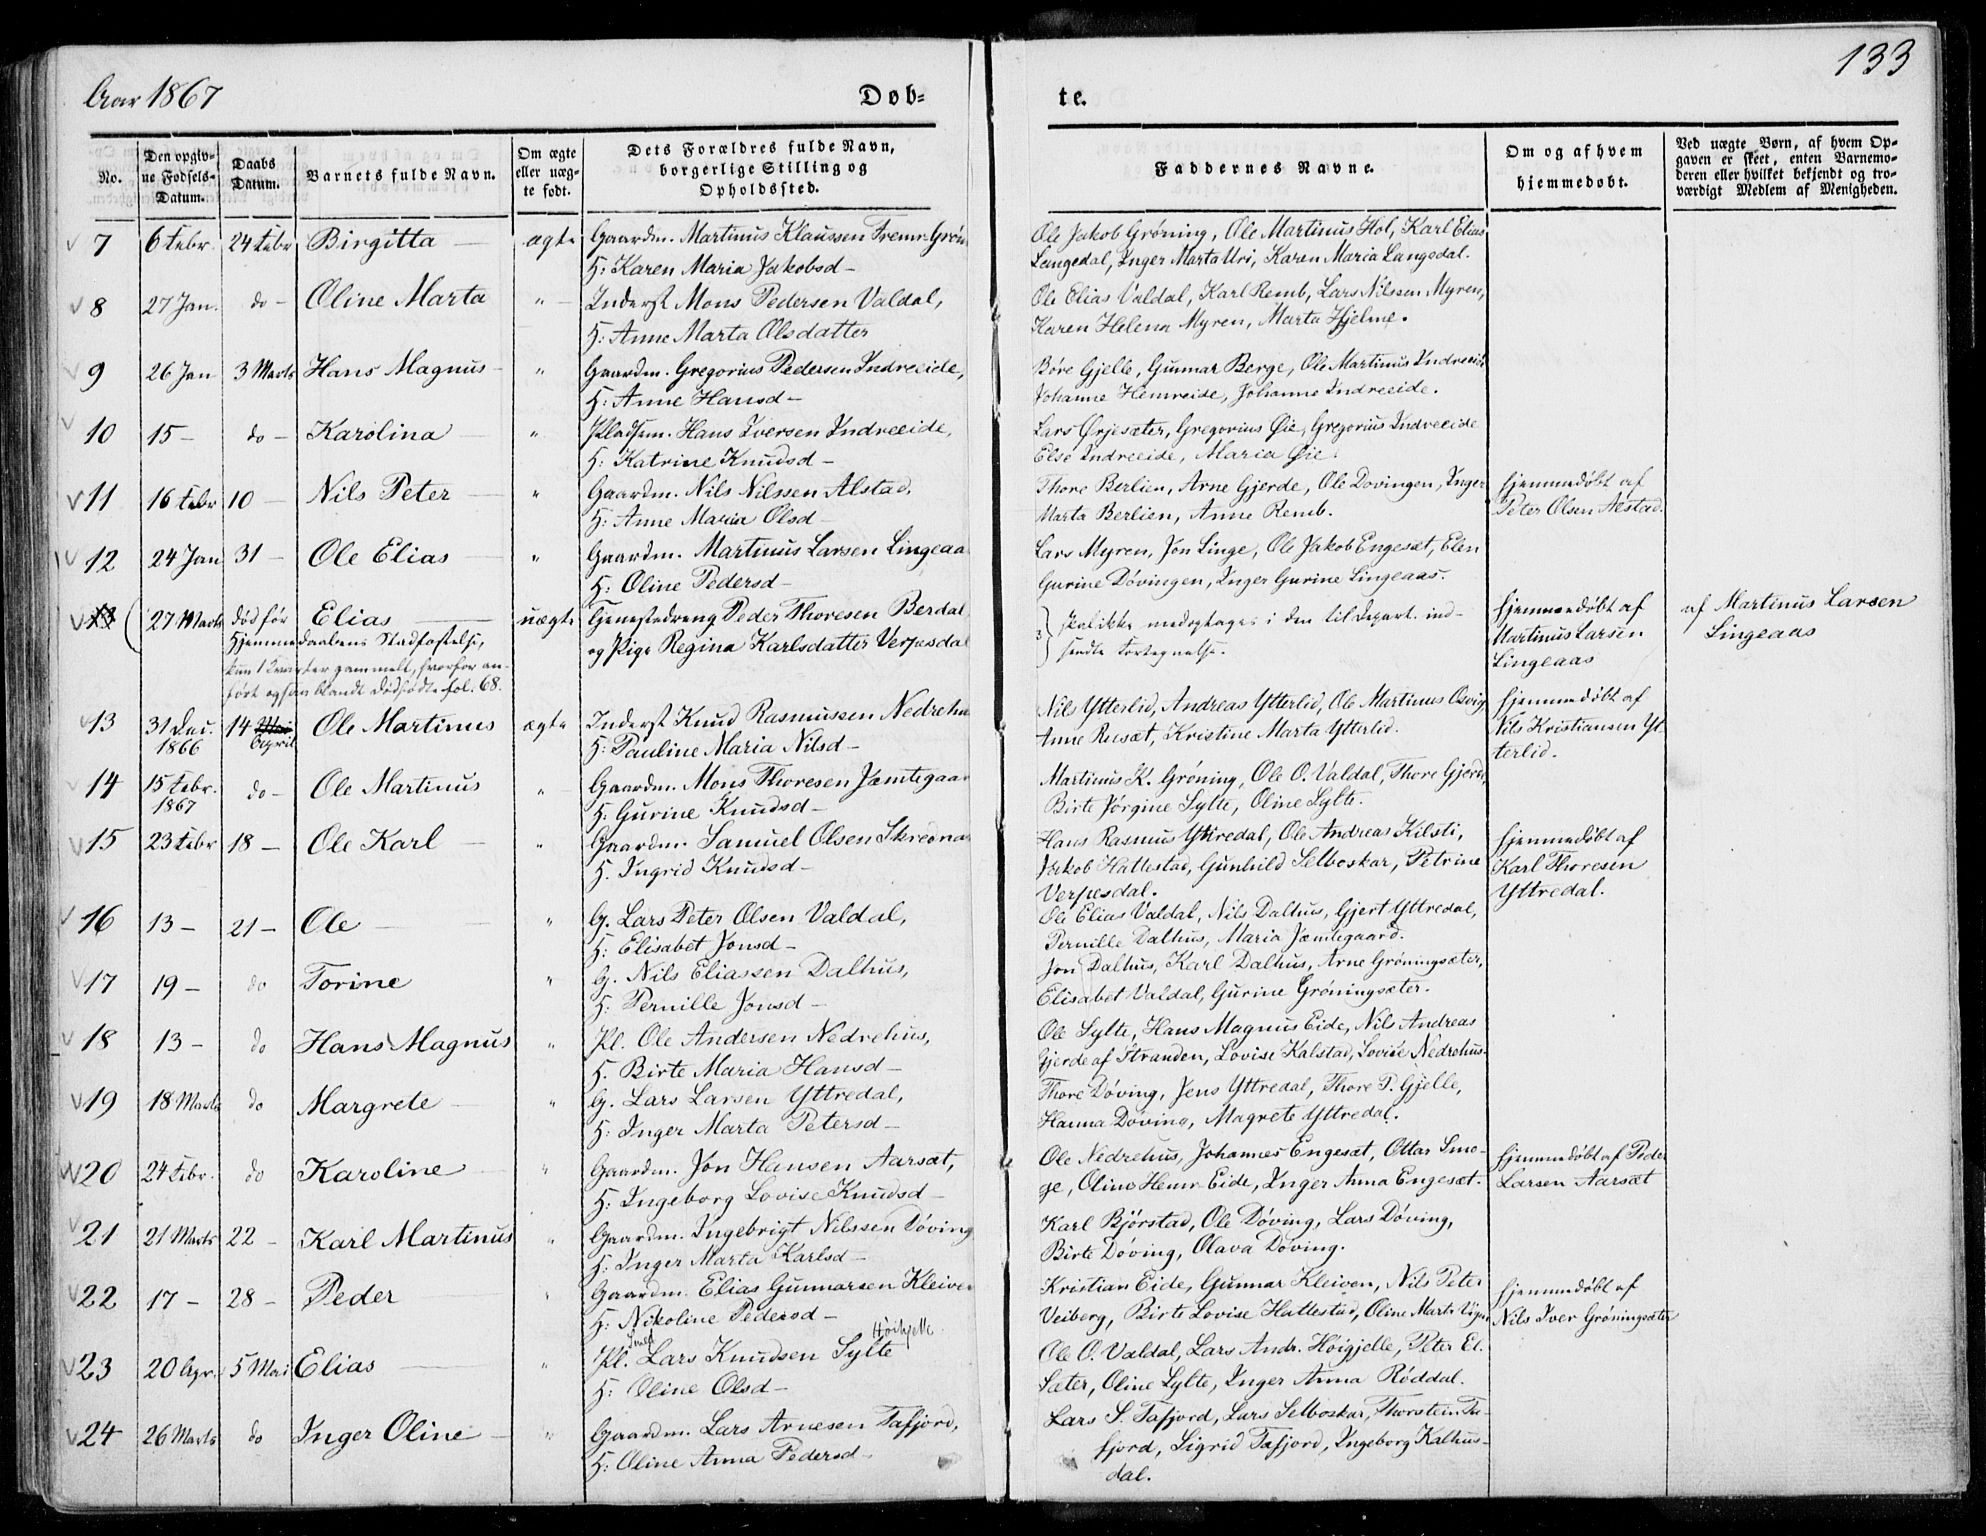 133
Aar 1867
Døb-
te.
No.
Den opgiv-
ne Fødsels-
Datum.
Daabs
Datum.
Barnets fulde Navn.
Om ægte
eller uæg-
te født.
Dets Forældres fulde Navn,
borgerlige Stilling og
Opholdssted.
Faddernes Navne.
Om og af hvem
hjemmedøbt.
Ved uægte Børn, af hvem Op-
gaven er skeet, enten Barnemo-
deren eller hvilket bekjendt og tro-
værdigt Medlem af Menigheden.
7 6 Febr. 24 Febr Birgitta ægte Gaardm. Martinus Klaussen Fremr. Grøn
H: Karen Maria Jakobsd-
Ole Jakob Grøning, Ole Martinus Hol, Karl Elias
Langedal, Inger Marta Uri, Karen Maria Langsdal.
8 27 Jan. do - Oline Marta " Inderst Mons Pedersen Valdal,
H: Anne Marta Olsdatter
Ole Elias Valdal, Karl Remb, Lars Nilssen Myren,
Karen Helena Myren, Marta Hjelme.
9 26 Jan 3 Marts Hans Magnus " Gaardm. Gregorius Pedersen Indreeide,
H: Anne Hansd-
Børe Gjelle, Gunnar Berge, Ole Martinus Indreeide
Johanne Hemreide, Johanne Indreeide.
10 15- do - Karolina " Pladsm. Hans Iversen Indreeide,
H: Katrine Knudsd-
Lars Ørjesæter, Gregorius Øie, Gregorius Indreeide
Else Indreeide, Maria Øie.
11 16 Febr 10 - Nils Peter " Gaardm. Nils Nilssen Alstad,
H: Anne Maria Olsd-
Thore Berlien, Arne Gjerde, Ole Dovingen, Inger
Marta Berlien, Anne Remb.
hjemmedøbt af
Peter Olsen Alstad.
12 24 Jan 31 - Ole Elias " Gaardm. Martinus Larsen Lingeaa
H: Oline Pedersd-
Lars Myren, Jon Linge, Ole Jakob Engesæt, Elen
Gurine Døvingen, Inger Gurine Lingeaas.
13 27 Marts død før Elias uægte Tjenestedreng Peder Thoresen Berdal
Hjemmedaabens Stadfæstelse, og Pige Regina Karlsdatter Verpesdal
kun 1 Kvarter gammelt, hvorfor an-
ført ogsaa blandt dødfødte fol. 68.
skal ikke medoptages i den til Depart. ind-
sendte Fortegnelse.
hjemmedøbt af
Martinus Larsen
Lingeaas
af Martinus Larsen
Lingeaas
13 31 Dec. 14 Mai Ole Martinus ægte Inderst Knud Rasmussen Nedrehu
1866 April H: Pauline Maria Nilsd-
Nils Ytterlid, Andreas Ytterlid, Ole Martinus Osvig
Anne Reusæt, Kristine Marta Ytterlid.
hjemmedøbt af
Nils Kristiansen Yt
terlid.
14 15 Febr. do - Ole Martinus " Gaardm. Mons Thoresen Jæmtegaar
1867 H: Gurine Knudsd-
Martinus K. Grøning, Ole O. Valdal, Thore Gjerde,
Birte Jørgine Sylte, Oline Sylte.
15 23 Febr 18 - Ole Karl " Gaardm. Samuel Olsen Skredna
H. Ingrid Knudsd-
Hans Rasmus Yttredal, Ole Andreas Kilsti,
Jakob Hattestad, Gunhild Selboskar, Petrine
Verpesdal.
hjemmedøbt af
Karl Thoresen
Yttredal.
16 13 - 21 - Ole " G. Lars Peter Olsen Valdal,
H: Elisabet Jonsd-
Ole Elias Valdal, Nils Dalhus, Gjert Yttredal,
Pernille Dalhus, Maria Jæmtegaard.
17 19 - do Torine " G. Nils Eliassen Dalhus,
H: Pernille Jonsd-
Jon Dalhus, Karl Dalhus, Arne Grøningsæter,
Elisabet Valdal, Gurine Grøningsæter.
18 13 - do Hans Magnus " Pl. Ole Andersen Nedrehus,
H. Birte Maria Hansd-
Ole Sylte, Hans Magnus Eide, Nils Andreas
Gjerde af Stranden, Lovise Kalstad, Lovise Nedrehus.
19 18 Marts do Margrete " G. Lars Larsen Yttredal,
H: Inger Marta Petersd-
Thore Døving, Jens Yttredal, Thore P. Gjelle,
Hanna Døving, Magrete Yttredal.
20 24 Febr. do Karoline " Gaardm. Jon Hansen Aarsæt,
H. Ingeborg Lovise Knudsd-
Ole Nedrehus, Johannes Engesæt, Ottar Smo-
ge, Oline Hemr-Eide, Inger Anna Engesæt.
hjemmedøbt af Peder
Larsen Aarsæt
21 21 Marts 22 - Karl Martinus " Gaardm. Ingebrigt Nilssen Døving
H: Inger Marta Karlsd-
Karl Bjørstad, Ole Døving, Lars Døving,
Birte Døving, Olava Døving.
22 17 - 28 - Peder " Gaardm. Elias Gunnarsen Kleiven
H: Nikoline Pedersd-
Kristian Eide, Gunnar Kleiven, Nils Peter
Veiberg, Birte Lovise Hattestad, Oline Marta
hjemmedøbt af
Nils Iver Grøningsæter
23 20 Apr. 5 Mai Elias " Pl. Smed Lars Knudsen Sylte Høihjelle
H: Oline Olsd-
Ole O. Valdal, Lars Andr. Høigjelle, Peter El.
Sæter, Oline Sylte, Inger Anna Røddal.
24 26 Marts do Inger Oline " Gaardm. Lars Arnesen Tafjord,
H: Oline Anna Pedersd-
Lars S. Tafjord, Lars Selboskar, Thorstein Ta-
fjord, Sigrid Tafjord, Ingeborg Kalhus-
dal.